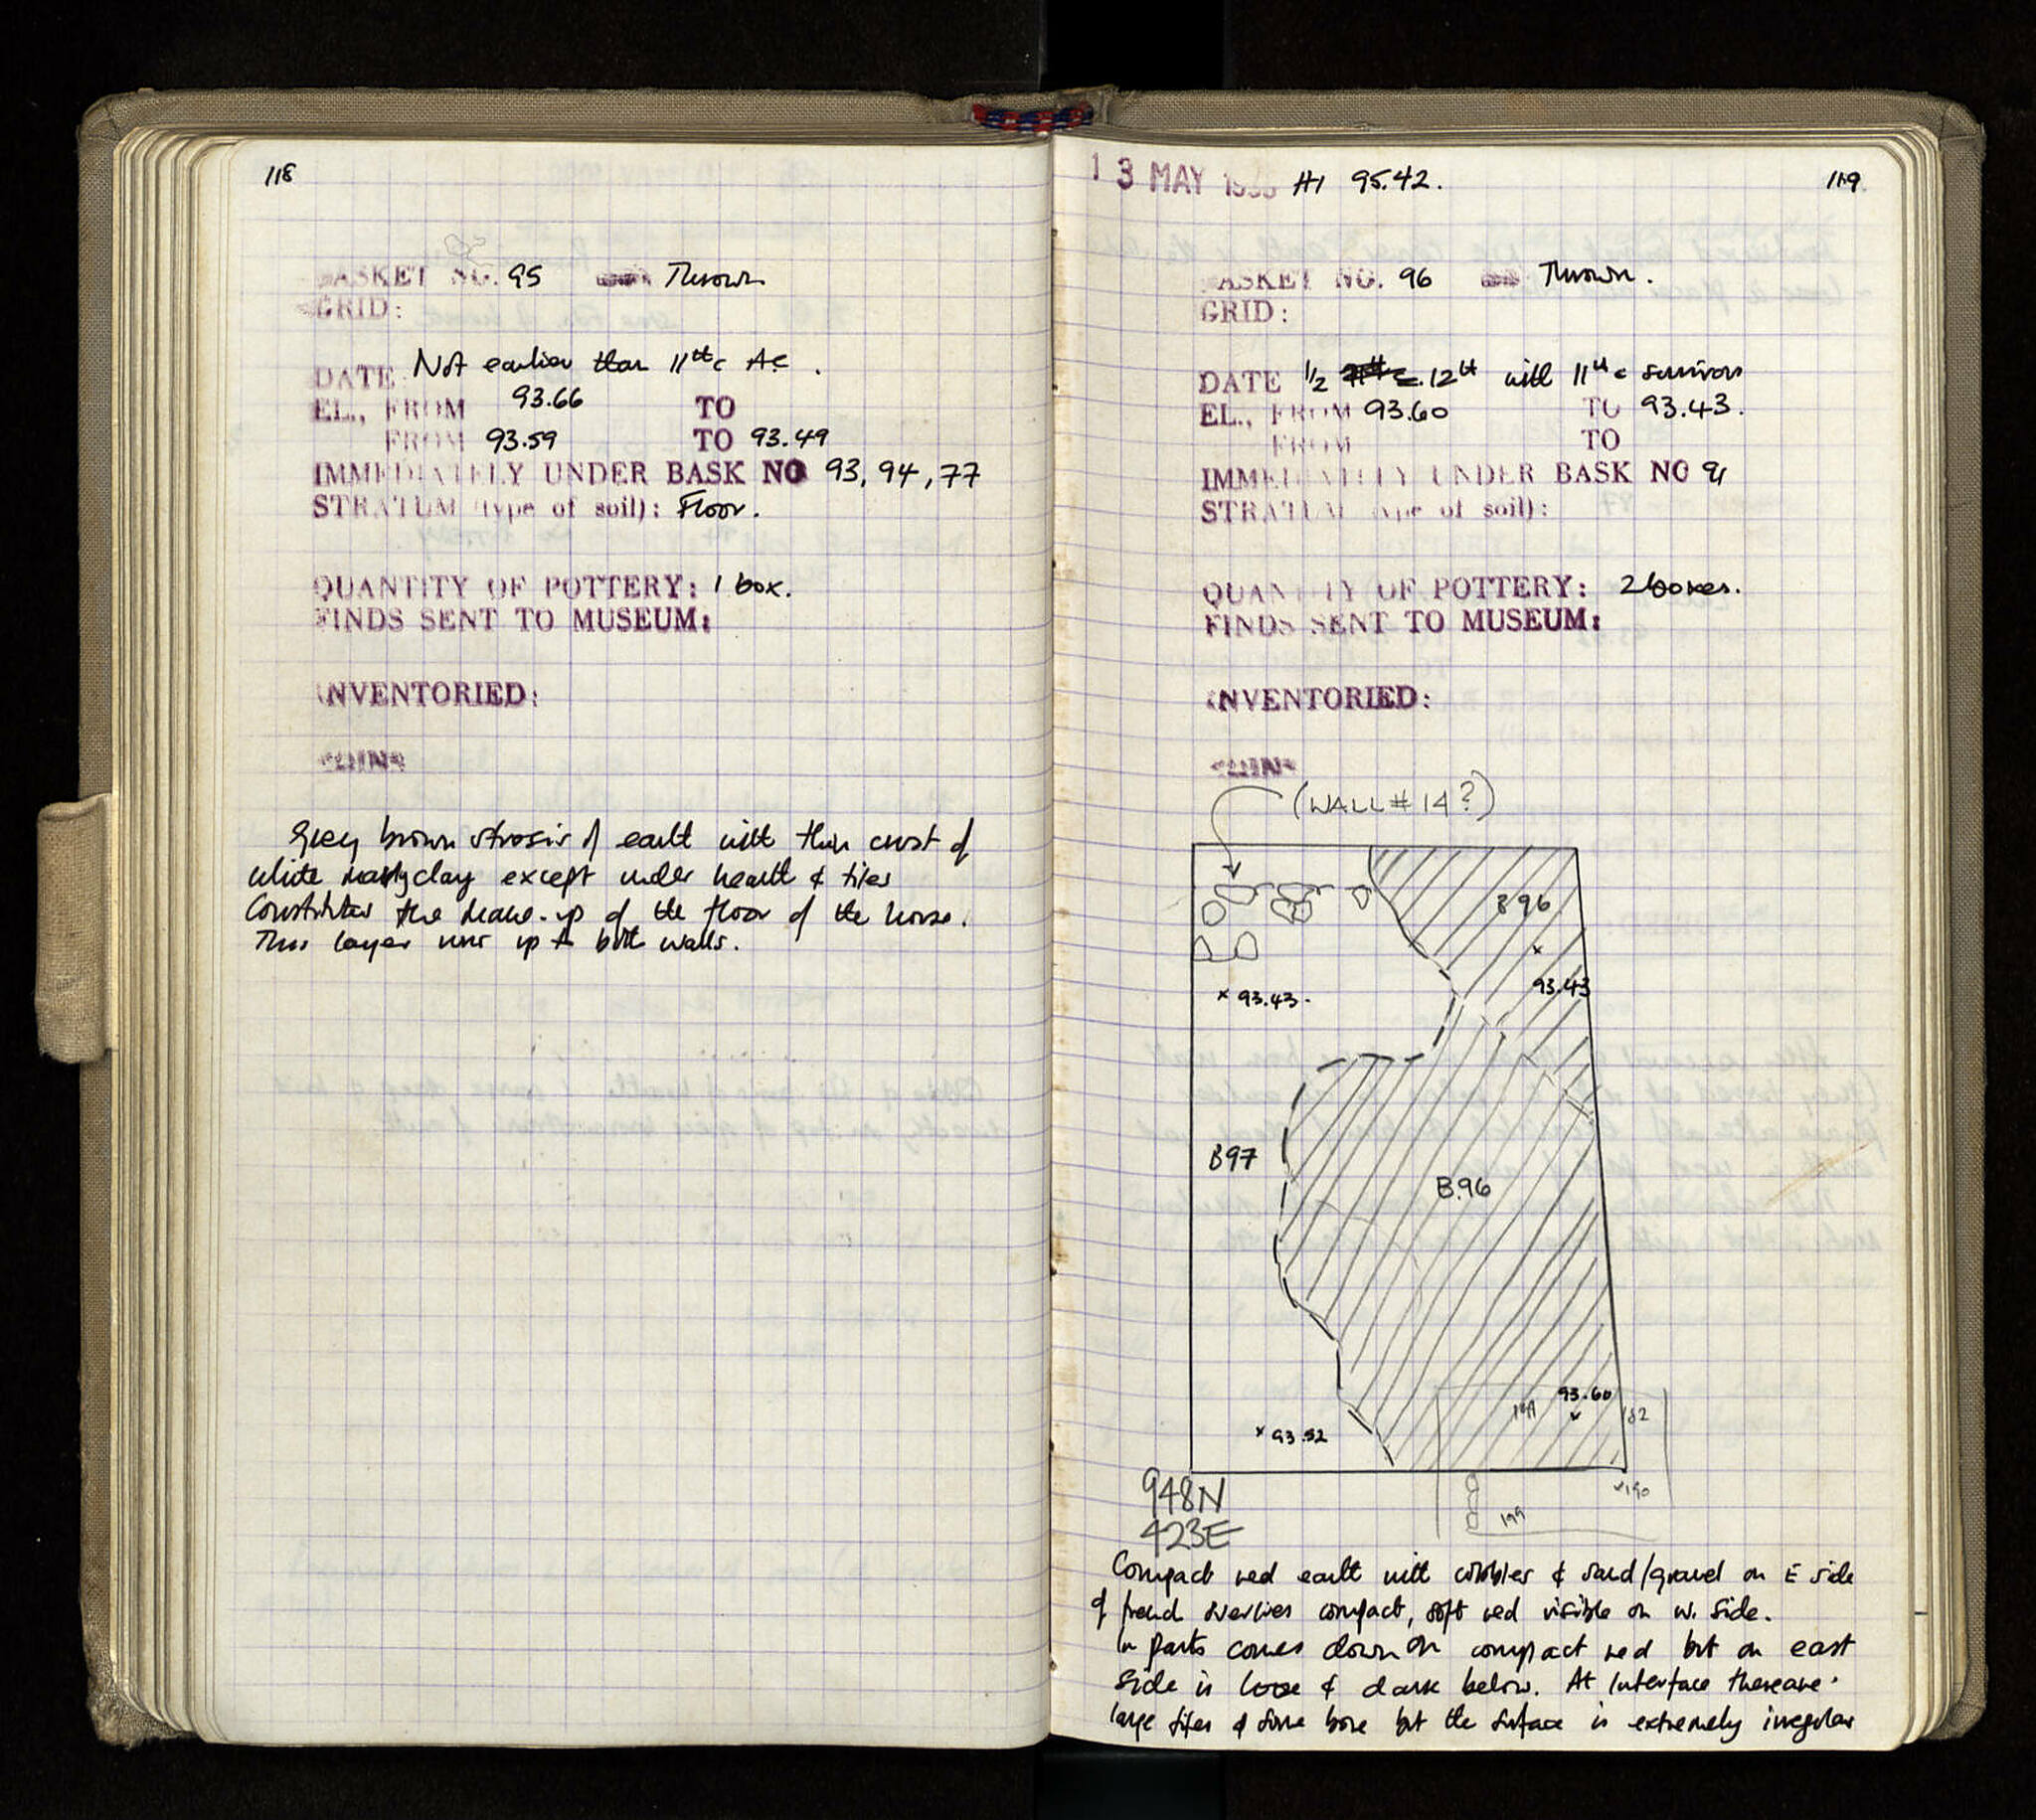 118
BASKET NO. 95 Thrown
GRID:
DATE Not earlier than 11th c AC.
EL., FROM 93.66 TO
FROM 93.59 TO 93.49
IMMEDIATELY UNDER BASK NO 93, 94, 77
STRATUM (type of soil): Floor.
QUANTITY OF POTTERY: 1 box.
FINDS SENT TO MUSEUM:
INVENTORIED:
COINS
Grey brown strosis of earth with thin crust of
white marly clay except under hearth & tiles
Constitutes the make-up of the floor of the house.
This layer runs up to both walls.
13 MAY H1 95.42.
119
BASKET NO. 96 Thrown.
GRID:
DATE 1/2 12th with 11th c survivors
EL., FROM 93.60 TO 93.43.
FROM TO
IMMEDIATELY UNDER BASK NO 91
STRATUM (type of soil):
QUANTITY OF POTTERY: 2 boxes.
FINDS SENT TO MUSEUM:
INVENTORIED:
COINS
(WALL # 14?)
B 96
x
93.43
x 93.43.
B97
B.96
93.60
x
182
x 93.52
948N
423E
x190
199
Compact red earth with cobbles & sand/gravel on E side
of trench overlies compact, soft red visible on w. side.
In parts comes down on compact red but on east
side is loose & dark below. At Interface there are
large tiles & some bone but the surface is extremely irregular